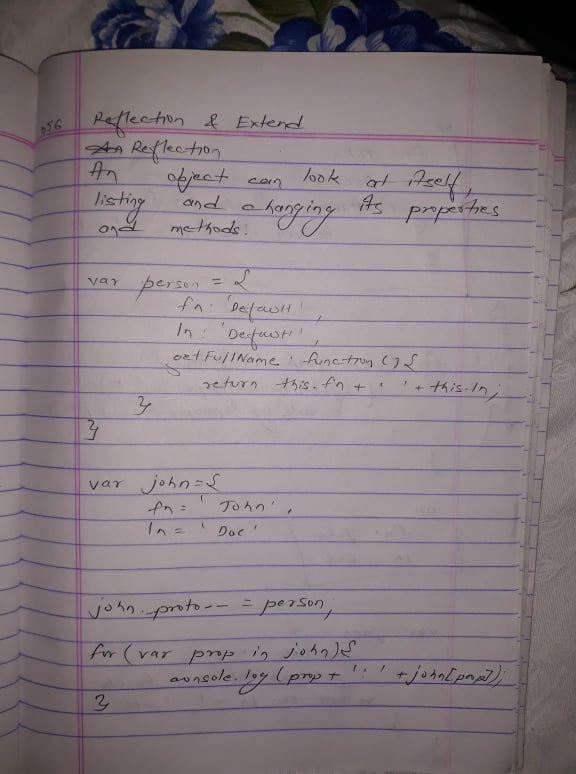 056 Reflection & Extend
An Reflection
An object can look at itself,
listing and changing its properties
and methods.
var person = {
fn: 'Default',
ln: 'Default',
getFullName: function () {
return this.fn + ' ' + this.ln;
}
}
var john = {
fn = 'John',
ln = 'Doe'
john.__proto__ = person;
for (var prop in john) {
console.log (prop + ':' + john[prop]);
}